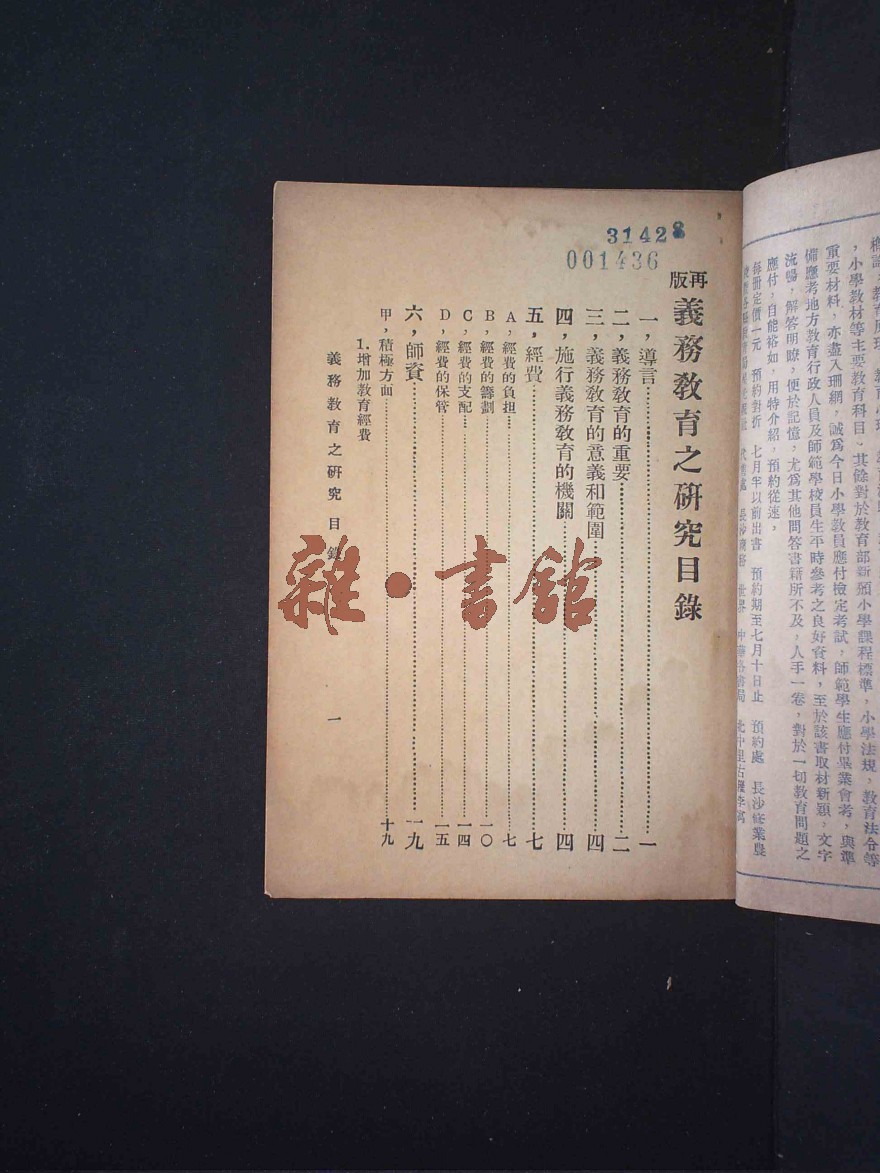 ，小學教材等主要教育科目、其餘對於教育部新頒小學課程標準，小學法規，教育法令等
重要材料，亦盡入珊網，誠為今日小學教員應付檢定考試，師範學生應付畢業會考，與準
備應考地方教育行政人員及師範學校員生平時參考之良好資料，至於該書取材新穎，文字
流暢，解答明瞭，便於記憶，尤為其他問答書籍所不及，人手一卷，對於一切教育問題之
應付，自能裕如，用特介紹，預約從速，
每冊定價一元　預約對折　七月半以前出書　預約期至七月十日止　預約處　長沙修業農
31428
001436
再版 義務教育之研究目錄
一，導言……一
二，義務教育的重要……二
三，義務教育的意義和範圍……四
四，施行義務教育的機關……四
五，經費……七
A，經費的負担……七
B，經費的籌劃……一〇
C，經費的支配……一四
D，經費的保管……一五
六，師資……一九
甲，積極方面……十九
1.增加教育經費
義務教育之研究　目錄　一
雜·書館